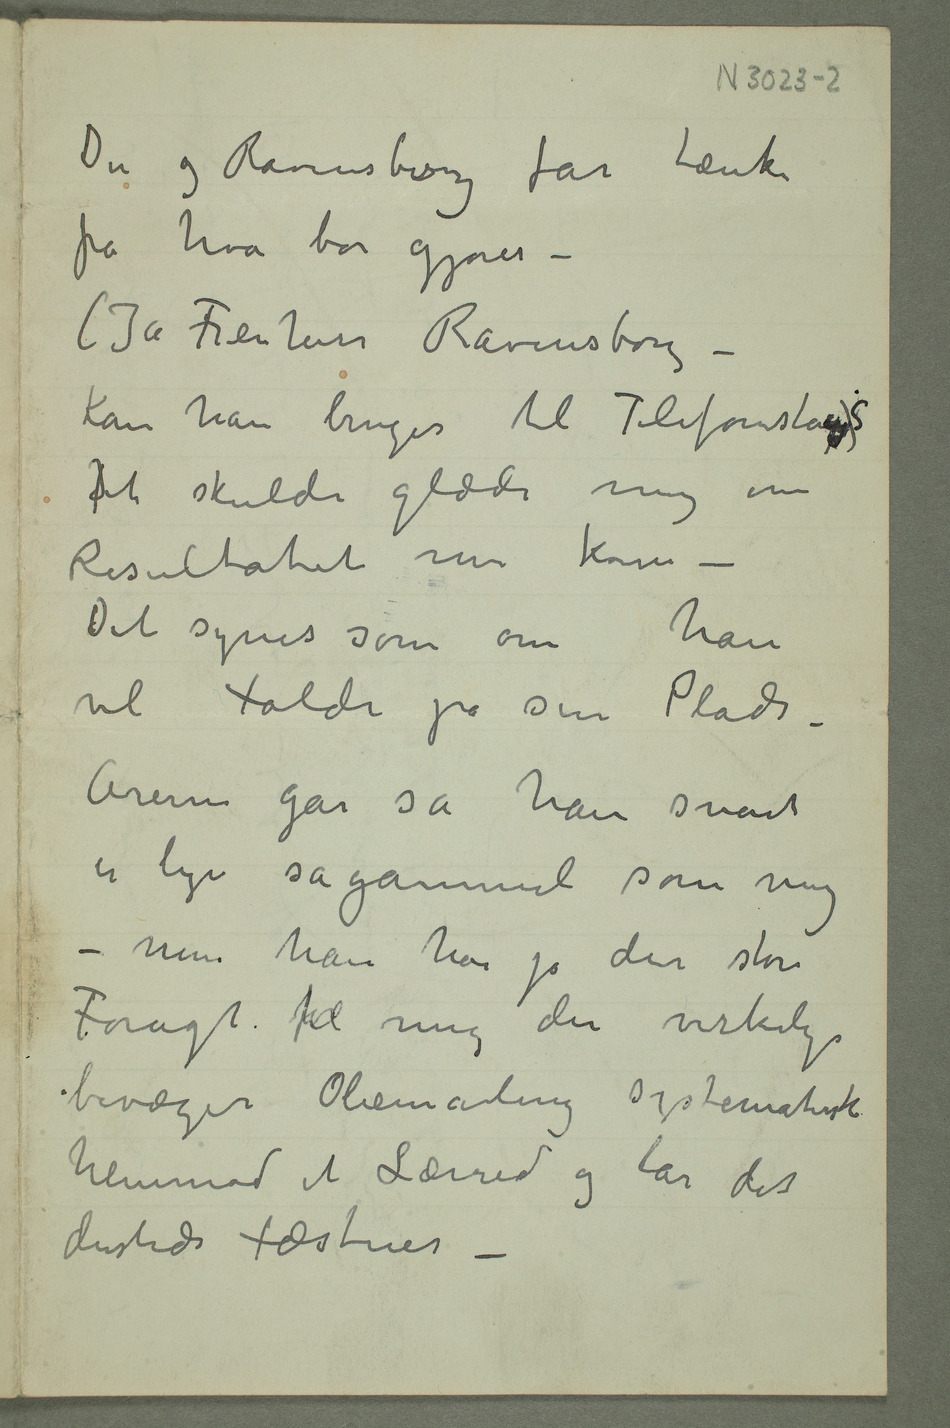 N 3023-2
Du og Ravensberg får tænke
på hva bør gjøres –
(Ja Frænheir Ravensborg –
Kan han bruges til Telefonstolpe)
Det skulde glæde mig om
Resultatet nu kom –
Det synes som om han
vil holde på sin Plads –
Årene går så han snart
er lige sågammel som mig
– men han har jo den store
Foragt til mig der virkelig
bevæger Oliemaling systematisk
henimod et Lærred og lar det
dersteds fæstnes –